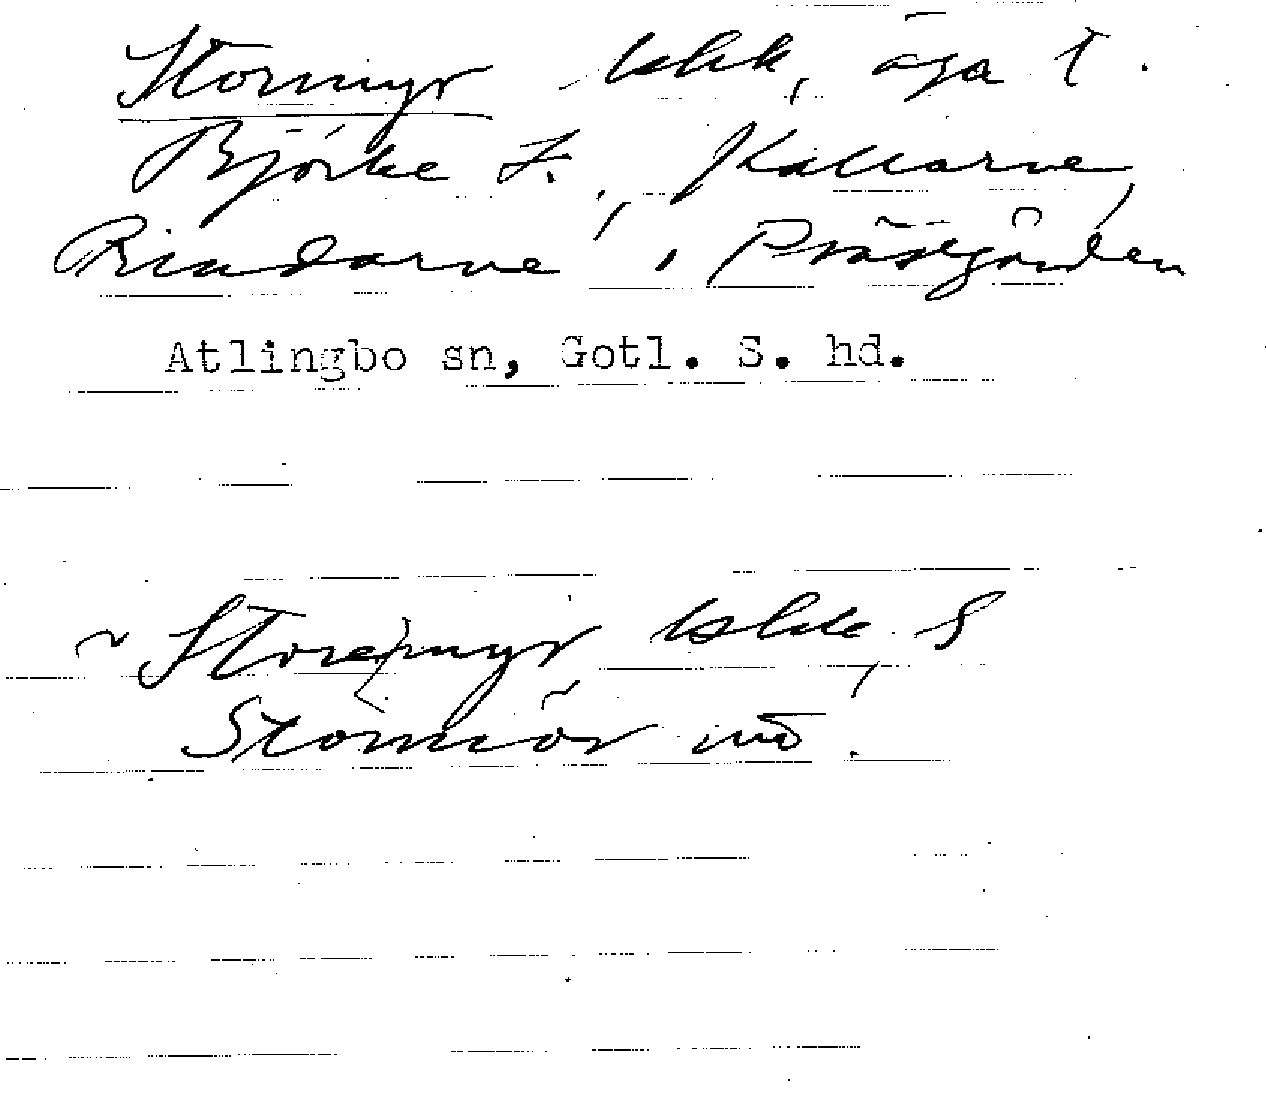 Stormyr khk, äga t.
Björke L., Källarve,
Rindarve, Prästgården
Atlingbo sn, Gotl. S. hd.
~ Storemyr khk, S
Stormör mö.